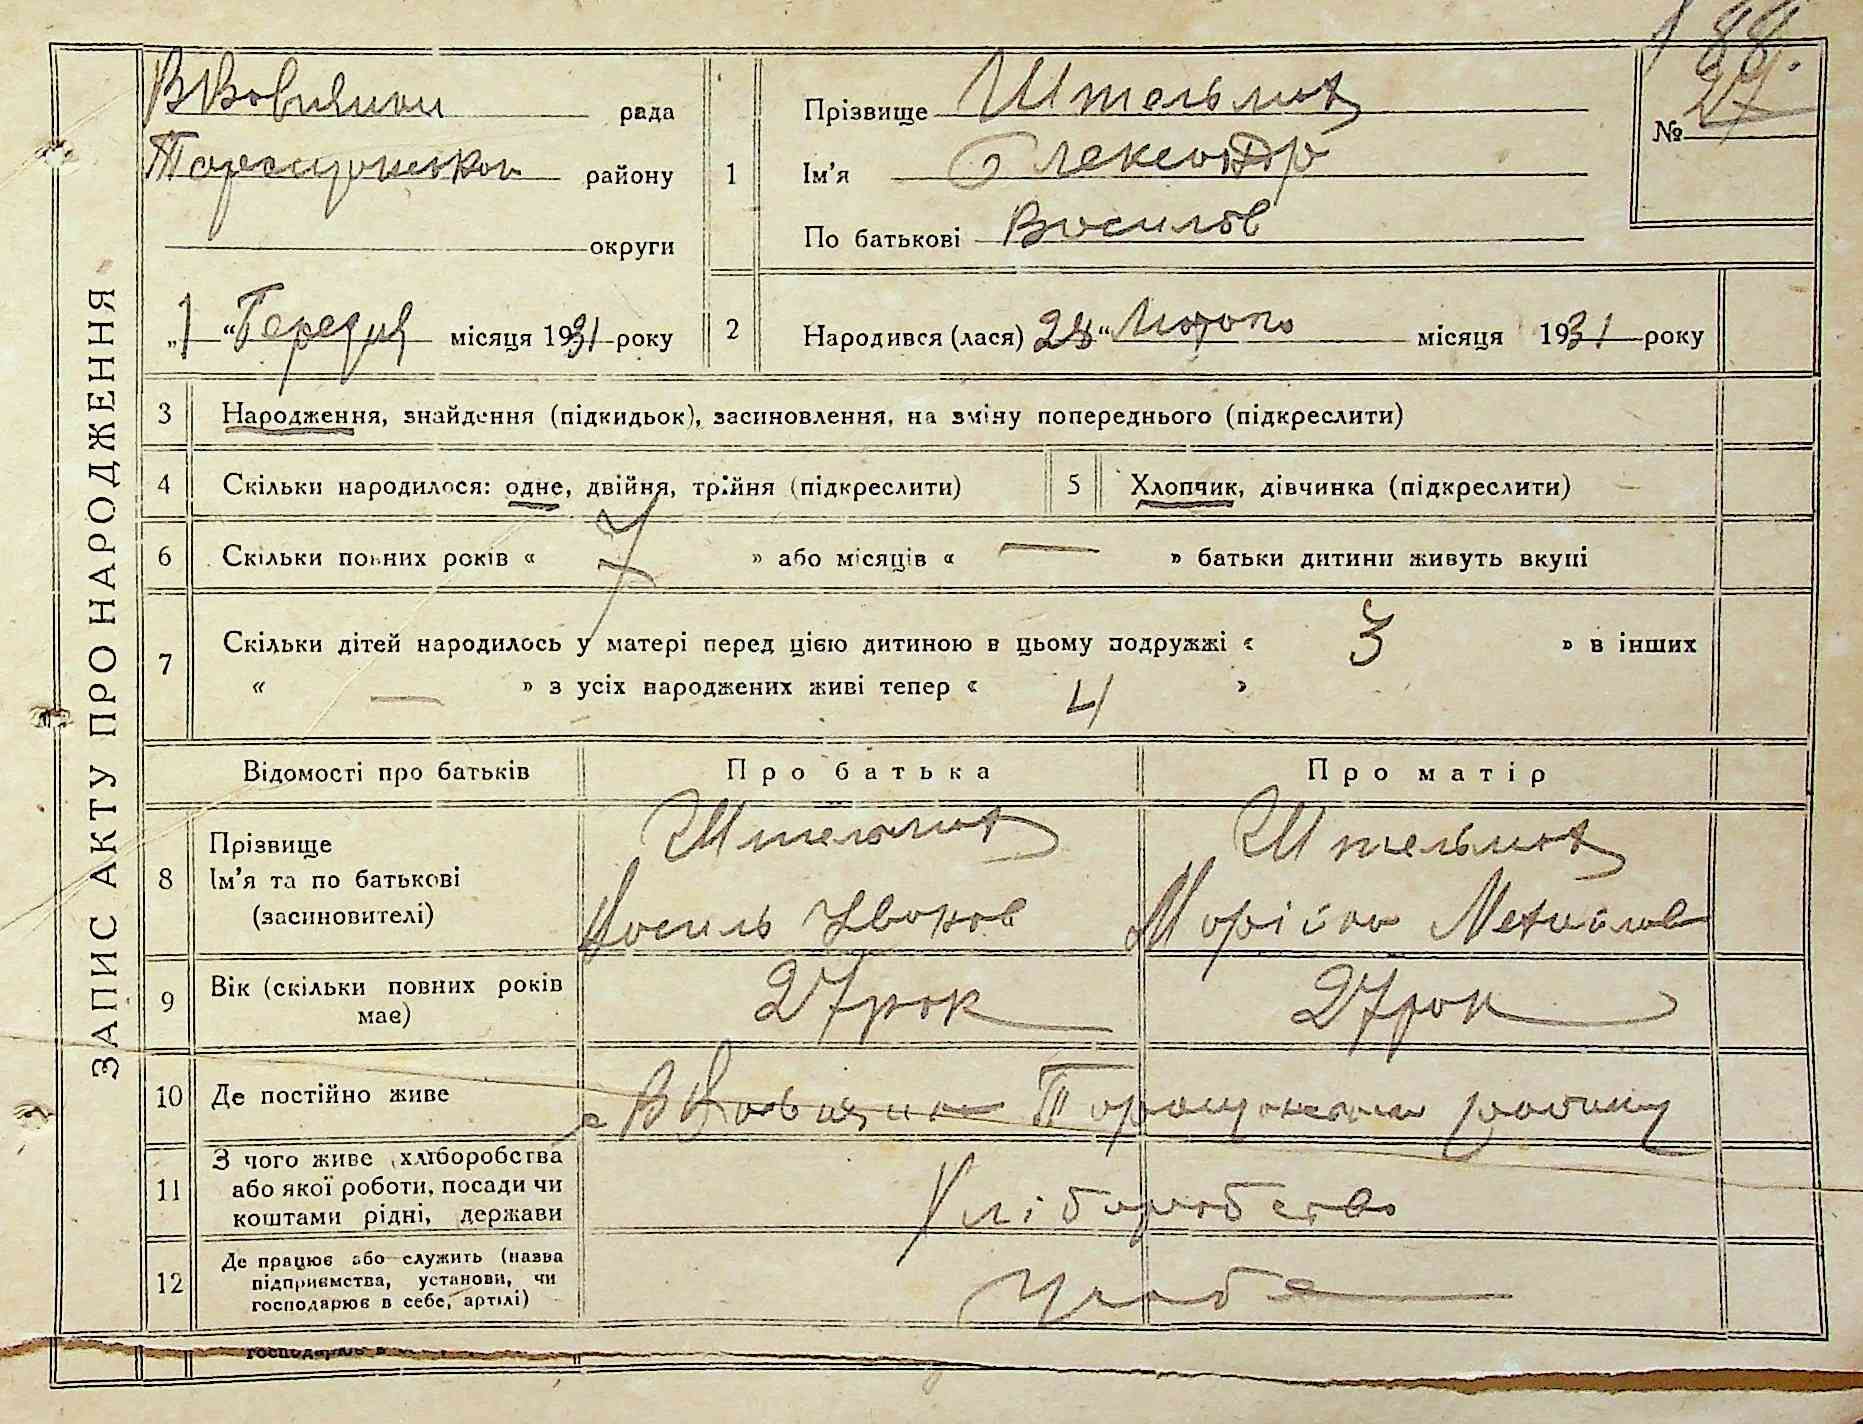 ЗАПИС АКТУ ПРО НАРОДЖЕННЯ
В Вовнянськ рада
Таращанськой району
округи
„1“ Березня місяця 1931 року
1
Прізвище Штельмах
Ім'я Олександр
По батькові Василів
№ 27
88.
2
Народився (лася) 28 “Лютого місяця 1931 року
3 Народження, знайдення (підкидьок), засиновлення, на зміну попереднього (підкреслити)
4 Скільки народилося: одне, двійня, трійня (підкреслити)
5 Хлопчик, дівчинка (підкреслити)
6 Скільки повних років « 7 » або місяців « — » батьки дитини живуть вкупі
7 Скільки дітей народилось у матері перед цією дитиною в цьому подружжі « 3 » в інших
« — » з усіх народжених живі тепер « 4 »
Відомості про батьків Про батька Про матір
8 Прізвище
Ім'я та по батькові
(засиновителі)
Штельмах
Василь Іванов
Штельмах
9 Вік (скільки повних років
має)
27 рок
27 рок
10 Де постійно живе
Таращанського району
11 З чого живе хліборобства
або якої роботи, посади чи
коштами рідні, держави
Хліборобство
12 Де працює або служить (назва
підприємства, установи, чи
господарює в себе, артілі)
У себе